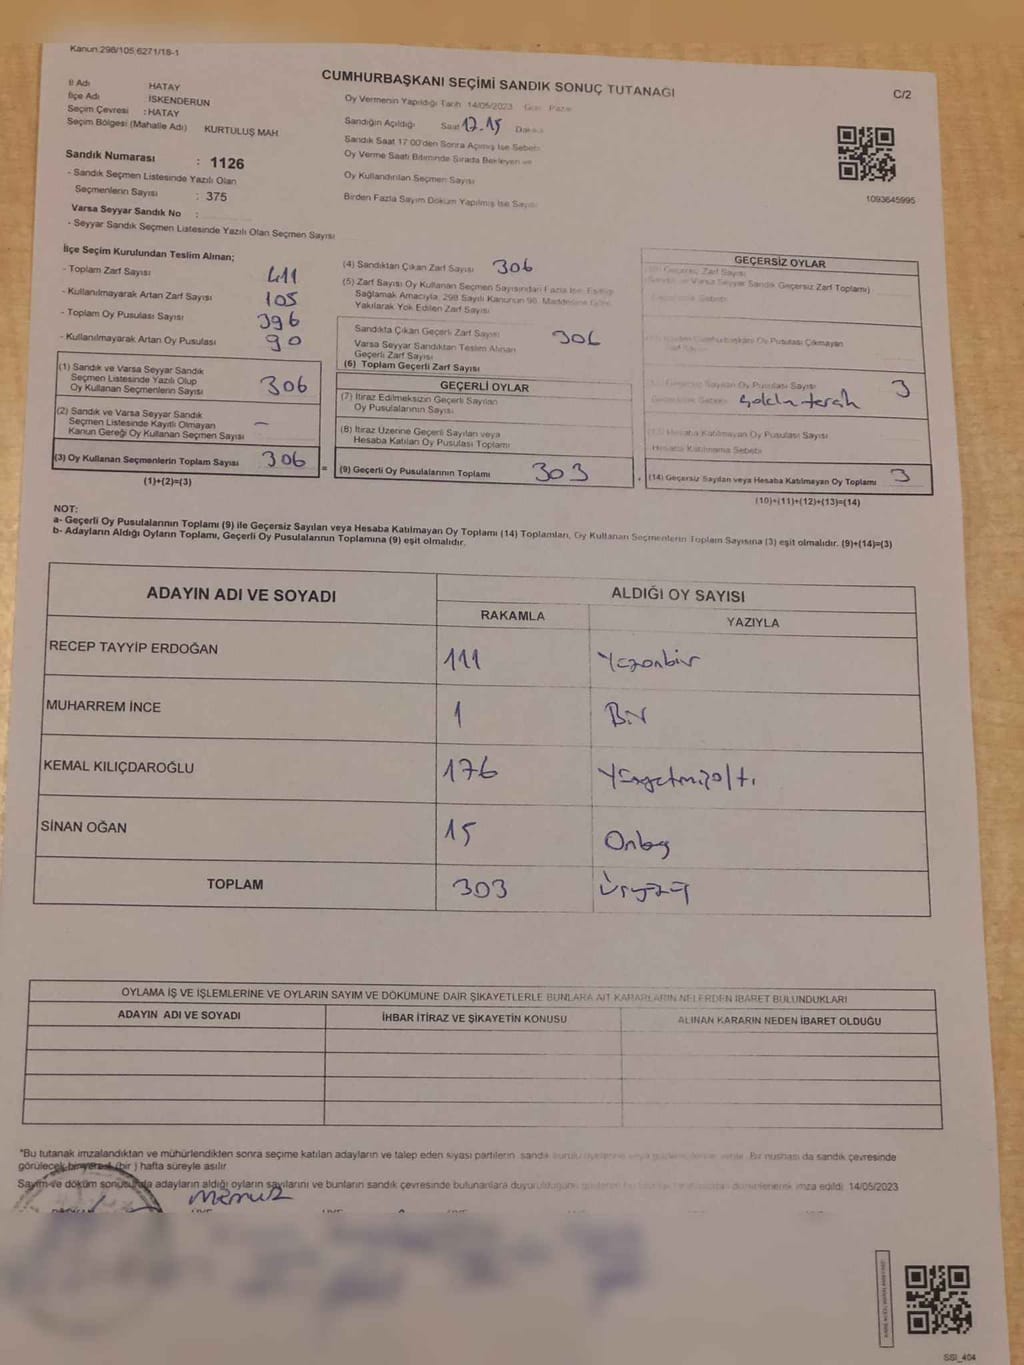 Kanun:298/105,6271/18-1
CUMHURBAŞKANI SEÇİMİ SANDIK SONUÇ TUTANAĞI
C/2
İl Adı HATAY
İlçe Adı İSKENDERUN
Seçim Çevresi : HATAY
Seçim Bölgesi (Mahalle Adı) KURTULUŞ MAH.
Sandık Numarası : 1126
- Sandık Seçmen Listesinde Yazılı Olan
Seçmenlerin Sayısı : 375
Varsa Seyyar Sandık No :
- Seyyar Sandık Seçmen Listesinde Yazılı Olan Seçmen Sayısı
Oy Vermenin Yapıldığı Tarih 14/05/2023 Gün Pazar
Sandığın Açıldığı Saat 17.15 Dakika
Sandık Saat 17:00'den Sonra Açımış İse Sebebi
Oy Verme Saati Bitiminde Sırada Bekleyen ve
Oy Kullandırılan Seçmen Sayısı
Birden Fazla Sayım Döküm Yapılmış İse Sayısı
1093645995
İlçe Seçim Kurulundan Teslim Alınan;
- Toplam Zarf Sayısı 411
- Kullanılmayarak Artan Zarf Sayısı 105
- Toplam Oy Pusulası Sayısı 396
- Kullanılmayarak Artan Oy Pusulası 90
(1) Sandık ve Varsa Seyyar Sandık
Seçmen Listesinde Yazılı Olup
Oy Kullanan Seçmenlerin Sayısı 306
(2) Sandık ve Varsa Seyyar Sandık
Seçmen Listesinde Kayıtlı Olmayan
Kanun Gereği Oy Kullanan Seçmen Sayısı -
(3) Oy Kullanan Seçmenlerin Toplam Sayısı 306
(1)+(2)=(3)
(4) Sandıktan Çıkan Zarf Sayısı 306
(5) Zarf Sayısı Oy Kullanan Seçmen Sayısından Fazla İse, Eşitliği
Sağlamak Amacıyla, 298 Sayılı Kanunun 98. Maddesine Göre
Yakılarak Yok Edilen Zarf Sayısı
Sandıkta Çıkan Geçerli Zarf Sayısı 306
Varsa Seyyar Sandıktan Teslim Alınan
Geçerli Zarf Sayısı
(6) Toplam Geçerli Zarf Sayısı
GEÇERLİ OYLAR
(7) İtiraz Edilmeksizin Geçerli Sayılan
Oy Pusulalarının Sayısı
(8) İtiraz Üzerine Geçerli Sayılan veya
Hesaba Katılan Oy Pusulası Toplamı
= (9) Geçerli Oy Pusulalarının Toplamı 303
GEÇERSİZ OYLAR
Geçersiz Zarf Sayısı
ve Varsa Seyyar Sandık Geçersiz Zarf Toplamı)
Oy Pusulası Çıkmayan
Geçersiz Sayılan Oy Pusulası Sayısı 3
Hesaba Katılmayan Oy Pusulası Sayısı
Hesaba Katılmama Sebebi
+ (14) Geçersiz Sayılan veya Hesaba Katılmayan Oy Toplamı 3
(10)+(11)+(12)+(13)=(14)
NOT:
a- Geçerli Oy Pusulalarının Toplamı (9) ile Geçersiz Sayılan veya Hesaba Katılmayan Oy Toplamı (14) Toplamları, Oy Kullanan Seçmenlerin Toplam Sayısına (3) eşit olmalıdır. (9)+(14)=(3)
b- Adayların Aldığı Oyların Toplamı, Geçerli Oy Pusulalarının Toplamına (9) eşit olmalıdır.
ADAYIN ADI VE SOYADI ALDIĞI OY SAYISI
RAKAMLA YAZIYLA
RECEP TAYYİP ERDOĞAN 111 Yüzonbir
MUHARREM İNCE 1 Bir
KEMAL KILIÇDAROĞLU 176 Yüzyetmişaltı
SİNAN OĞAN 15 Onbeş
TOPLAM 303 Üçyüzüç
OYLAMA İŞ VE İŞLEMLERİNE VE OYLARIN SAYIM VE DÖKÜMÜNE DAİR ŞİKAYETLERLE BUNLARA AİT KARARLARIN NELERDEN İBARET BULUNDUKLARI
ADAYIN ADI VE SOYADI İHBAR İTİRAZ VE ŞİKAYETİN KONUSU ALINAN KARARIN NEDEN İBARET OLDUĞU
*Bu tutanak imzalandıktan ve mühürlendikten sonra seçime katılan adayların ve talep eden siyasi partilerin sandık kurulu üyelerine veya verilir. Bir nüshası da sandık çevresinde
görülecek bir yere (bir ) hafta süreyle asılır.
Sayım ve döküm sonucunda adayların aldığı oyların sayılarını ve bunların sandık çevresinde bulunanlara duyurulduğunu düzenlenerek imza edildi. 14/05/2023
SSI_404